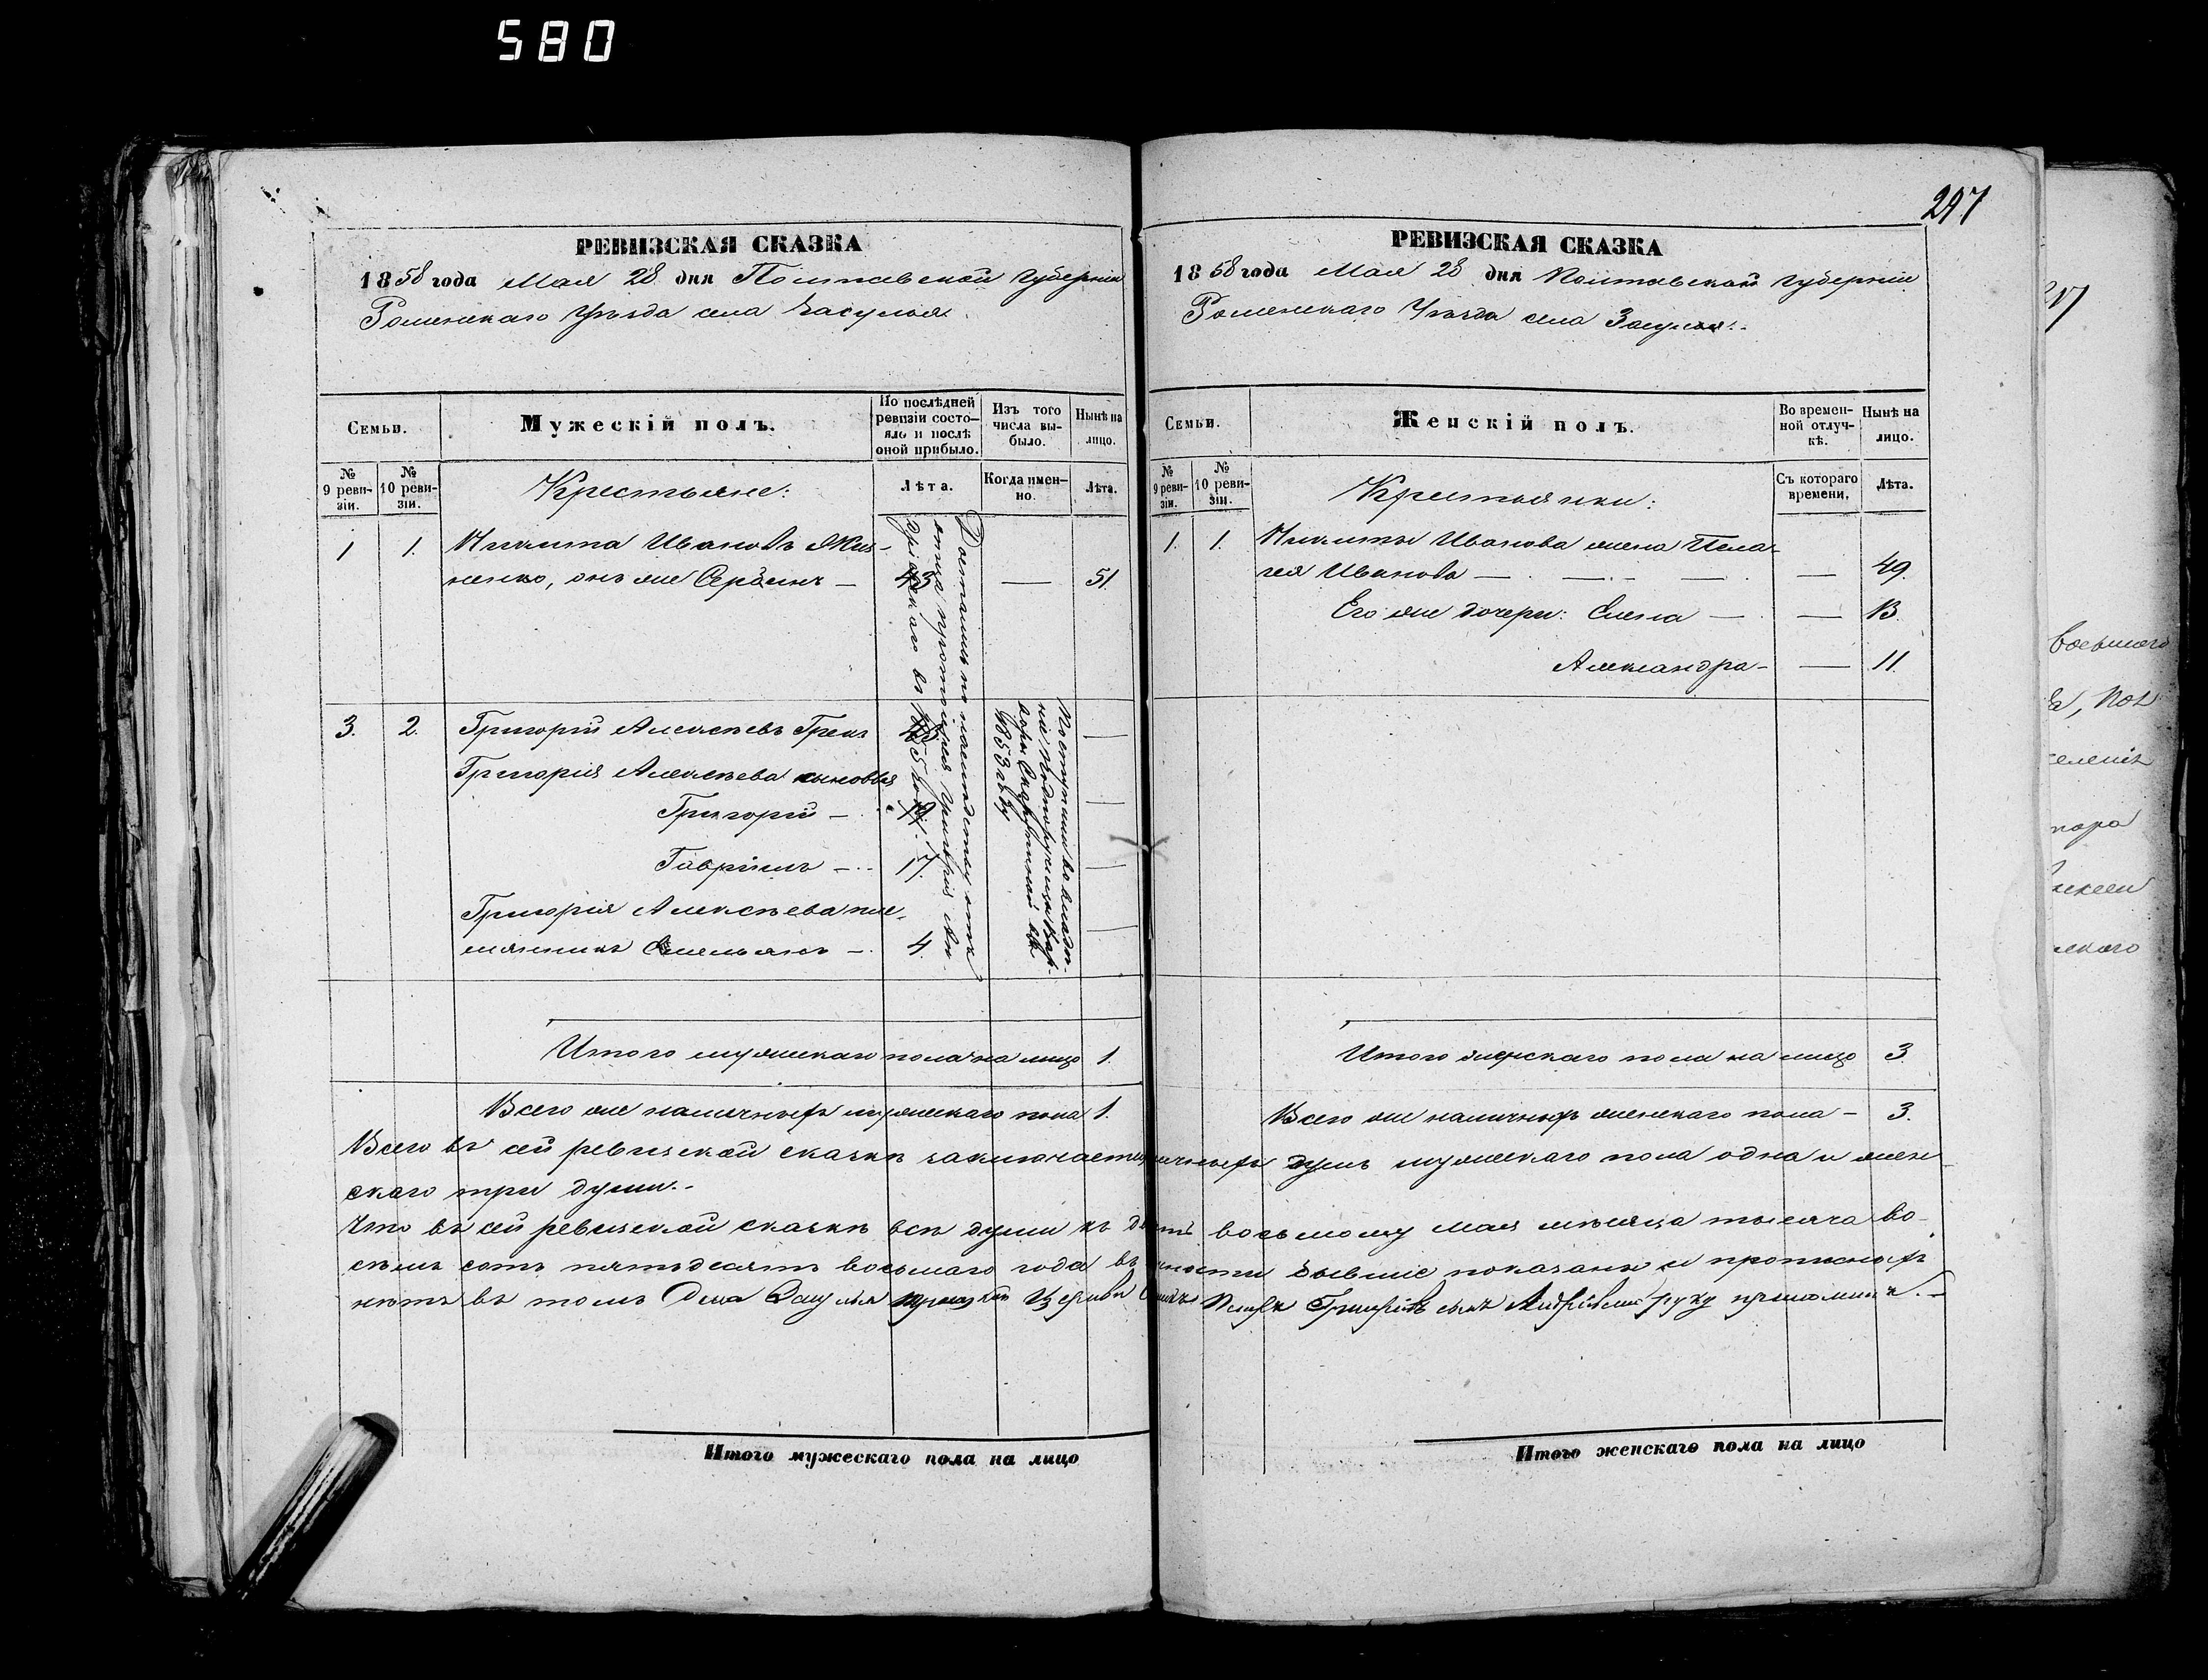 580
297
РЕВИЗСКАЯ СКАЗКА
1858 года Мая 28 дня Полтавской Губерніи
Роменскаго Уѣзда села Засулья.
Семьи.
Мужескій полъ.
По послѣдней ревизіи состояло и послѣ оной прибыло.
Изъ того числа выбыло.
Нынѣ на лицо.
№ 9 ревизіи.
№ 10 ревизіи.
Крестьяне:
Лѣта.
Когда именно.
Лѣта.
1 1. Никита Ивановъ
ненко, онъ же Сердинъ — 43 — 51.
3. 2. Григорій Алексѣевъ Грекъ —
Григорія Алексѣева сыновья
Григорій — 19. —
Гавріилъ — 17. —
Григорія Алексѣева пле-
мянникъ Емельянъ — 4. —
Достались по наслѣдству отъ
отца
въ 1855 году.
Поступили во владѣ-
ніе
1853 году
Итого мужескаго пола на лицо 1.
Всего же наличныхъ мужескаго пола 1.
РЕВИЗСКАЯ СКАЗКА
1858 года Мая 28 дня Полтавской Губерніи
Роменскаго Уѣзда села Засулья.
Семьи.
Женскій полъ.
Во временной отлучкѣ.
Нынѣ на лицо.
№ 9 ревизіи.
№ 10 ревизіи.
Крестьянки:
Съ котораго времени.
Лѣта.
1. 1. Никиты Иванова жена Пела-
гея Иванова — — 49.
Его же дочери: Елена — — 13.
Александра — — 11.
Итого женскаго пола на лицо 3
Всего же наличныхъ женскаго пола — 3.
Всего въ сей ревизской сказкѣ заключается наличныхъ душъ мужескаго пола одна и жен
скаго три души.
Что въ сей ревизской сказкѣ всѣ души къ восьмому мая мѣсяца тысяча во-
семь сотъ пятьдесятъ восьмаго года въ бывшіе показаны и прописныхъ
нѣтъ въ томъ Села Засулья Церкви Григорьевъ сынъ руку приложилъ. —
Итого мужескаго пола на лицо
Итого женскаго пола на лицо
восьмаго